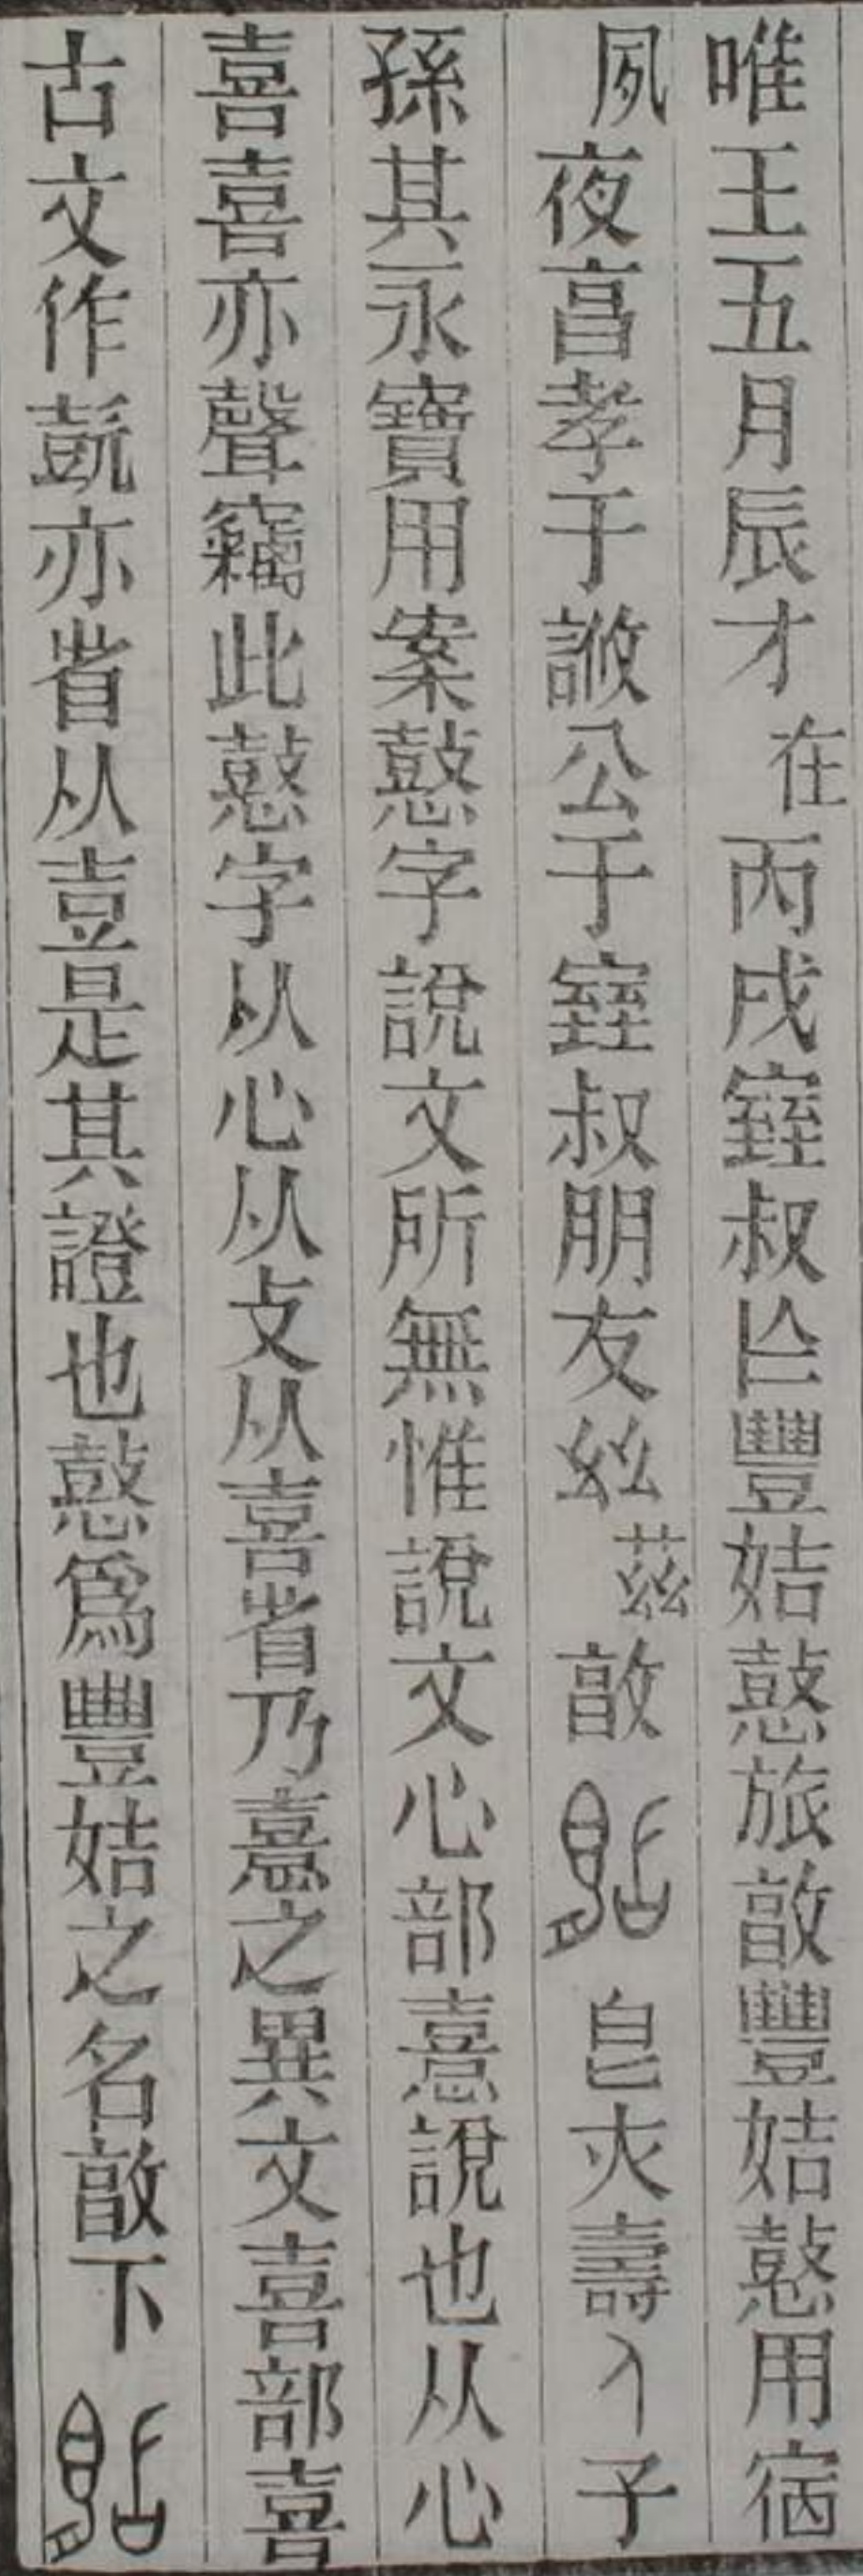 唯王五月辰才在丙戌室叔亼豐姞憙旅𣪘豐姞憙用宿
夙夜亯孝于諏公于室叔朋友𢆶茲𣪘皀夾壽人子
孫其永寶用案字說文所無惟說文心部憙說也从心
喜喜亦聲竊此字从心从攴从喜省乃憙之異文喜部喜
古文作歖亦省从壴是其證也為豐姞之名𣪘下